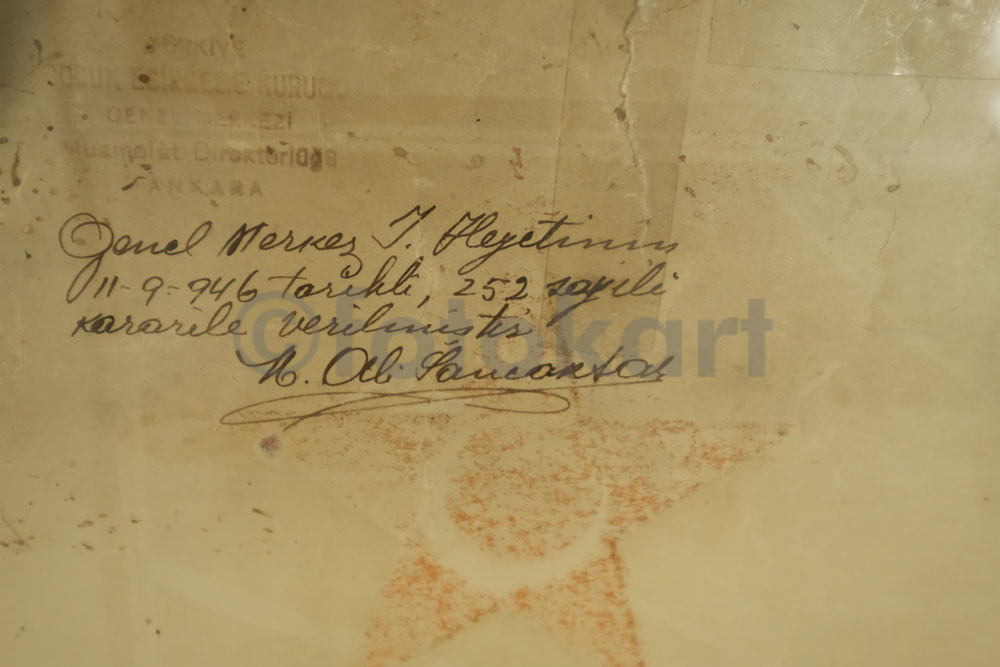 TÜRKİYE
ÇOCUK ESİRGEME KURUMU
GENEL MERKEZİ
Muamelât Direktörlüğü
ANKARA
Genel Merkez İ. Heyetinin
11-9-946 tarihli, 252 sayılı
kararile verilmiştir
©fotokart